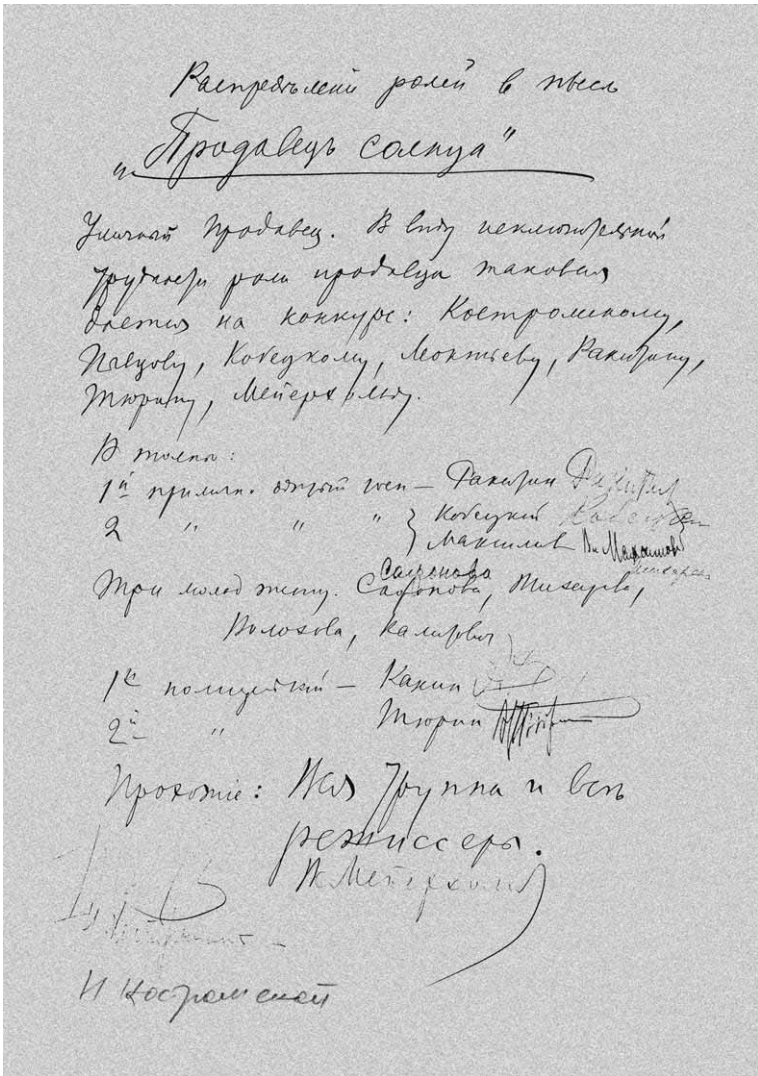 Распредѣленіе ролей в пьесѣ
„Продавецъ солнца"
Уличный Продавец. В виду исключительной
трудности роли продавца таковая
дается на конкурс: Костромскому,
Пѣвцову, Кобецкому, Леонтьеву, Ракитину,
Тюрину, Мейерхольду.
В толпѣ:
1й приличн. одѣтый госп — Ракитин Ракитин
2 " " " } Кобецкий Кобецкий
Максимов Вл Максимов
Сафонова
Три молод женщ. Сафонова, Писарева,
Волохова, Калитович
1й полицейскій — Канин
2й " Тюрин
Прохожіе: Вся Труппа и всѣ
режиссеры.
Вс Мейерхольд
И Костромской